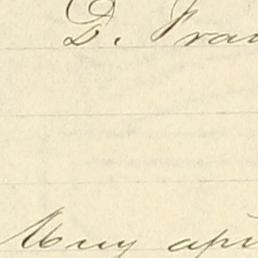 D. Fran
Muy apr